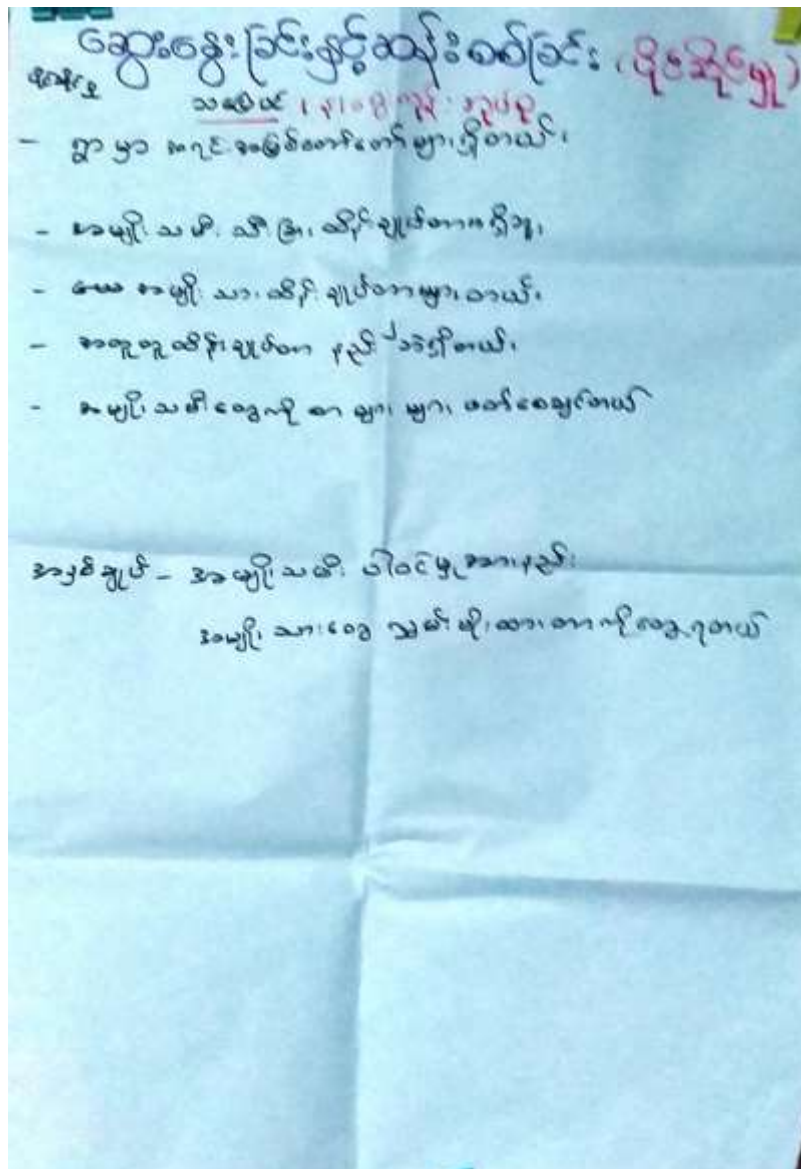 ဆွေးနွေးခြင်းနှင့်ဆန်းစစ်ခြင်း (ပိုင်ဆိုင်မှု)
- ရွာမှာ အရင်းအမြစ်တော်တော်များများရှိတယ်။
- အမျိုးသမီး သီးခြား ထိန်းချုပ်တာမရှိဘူး
- အမျိုးသားထိန်းချုပ်တာများတယ်။
- အတူတူထိန်းချုပ်တာ နည်းနည်းပဲရှိတယ်။
- အမျိုးသမီးတွေကို စာ များများ ဖတ်စေချင်တယ်
အနှစ်ချုပ် - အမျိုးသမီး ပါဝင်မှုအားနည်း
အမျိုးသားတွေ လွှမ်းမိုးထားတာကိုတွေ့ရတယ်